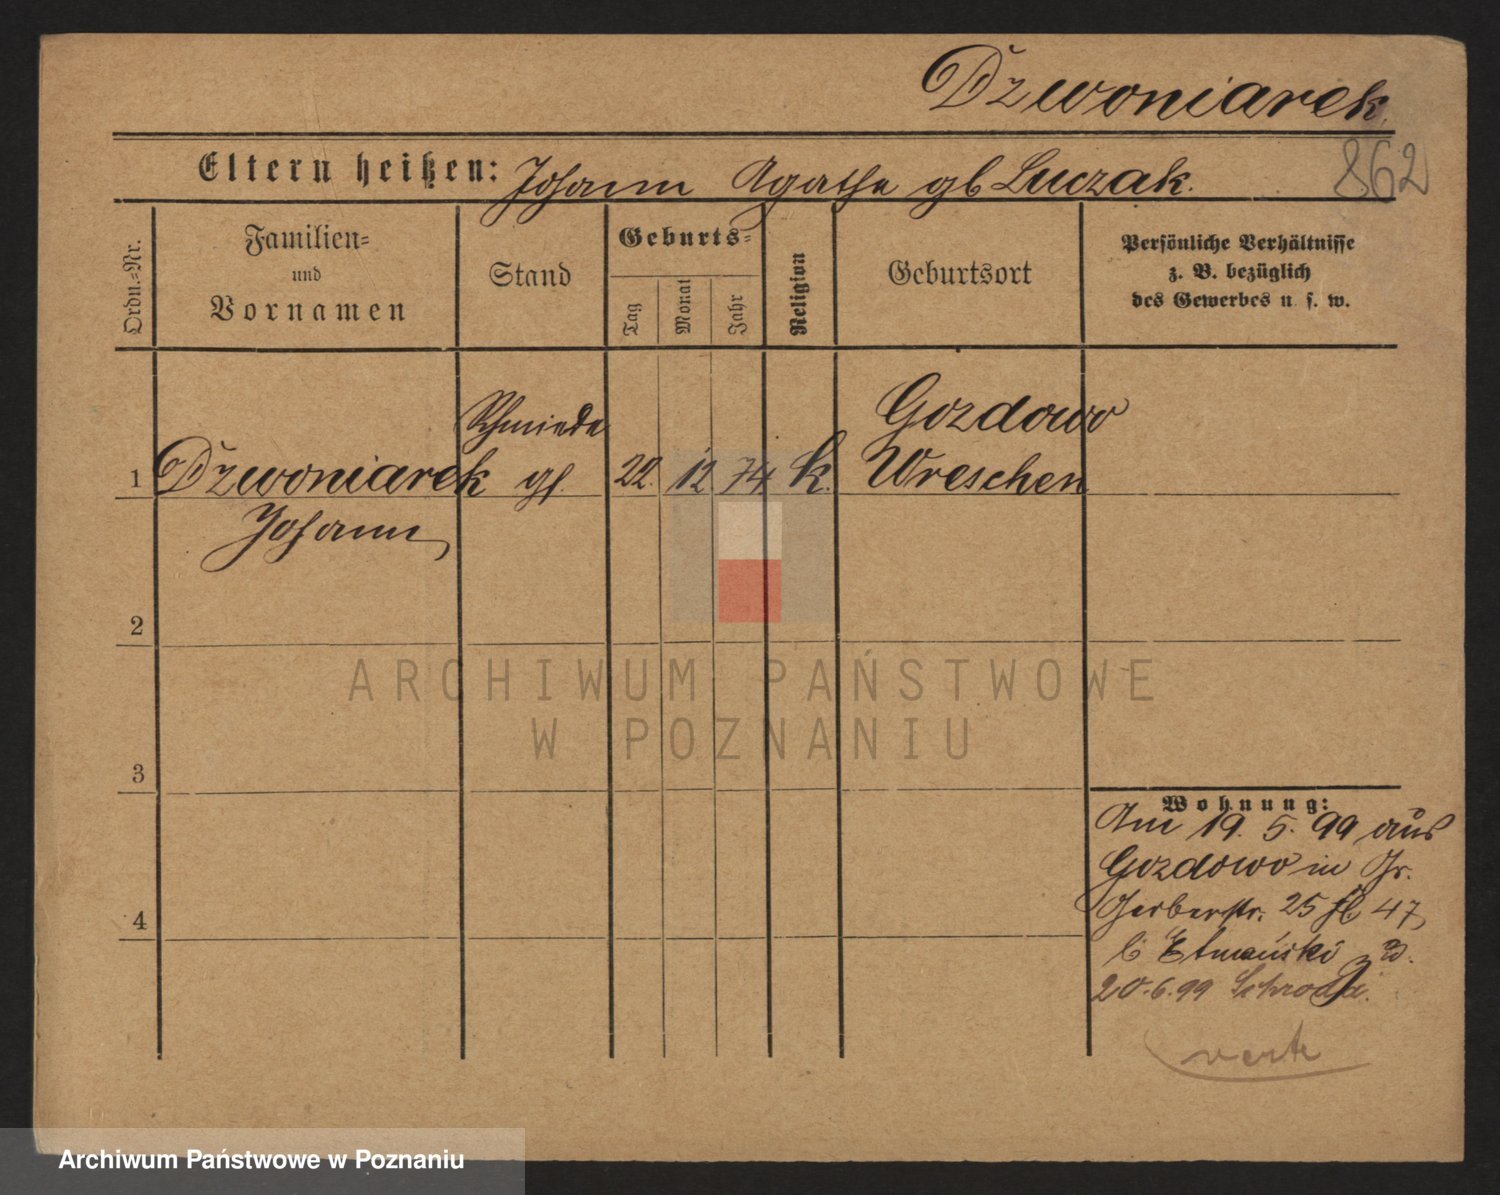 Dzwoniarek
862
Eltern heißen: Johann Agathe gb Luczak.
Ordn.=Nr.
Familien=
und
Vornamen
Stand
Geburts=
Tag
Monat
Jahr
Religion
Geburtsort
Persönliche Verhältnisse
z. B. bezüglich
des Gewerbes u. s. w.
Schmiede Gozdowo
1 Dzwoniarek gs. 22. 12 74 k. Wreschen
Johann
2
ARCHIWUM PAŃSTWOWE
W POZNANIU
3
4
Wohnung:
Am 19. 5. 99 aus
Gozdowo in Gr.
Gerberstr. 25 47
b Etmański
20.6.99 Schroda.
verte
Archiwum Państwowe w Poznaniu